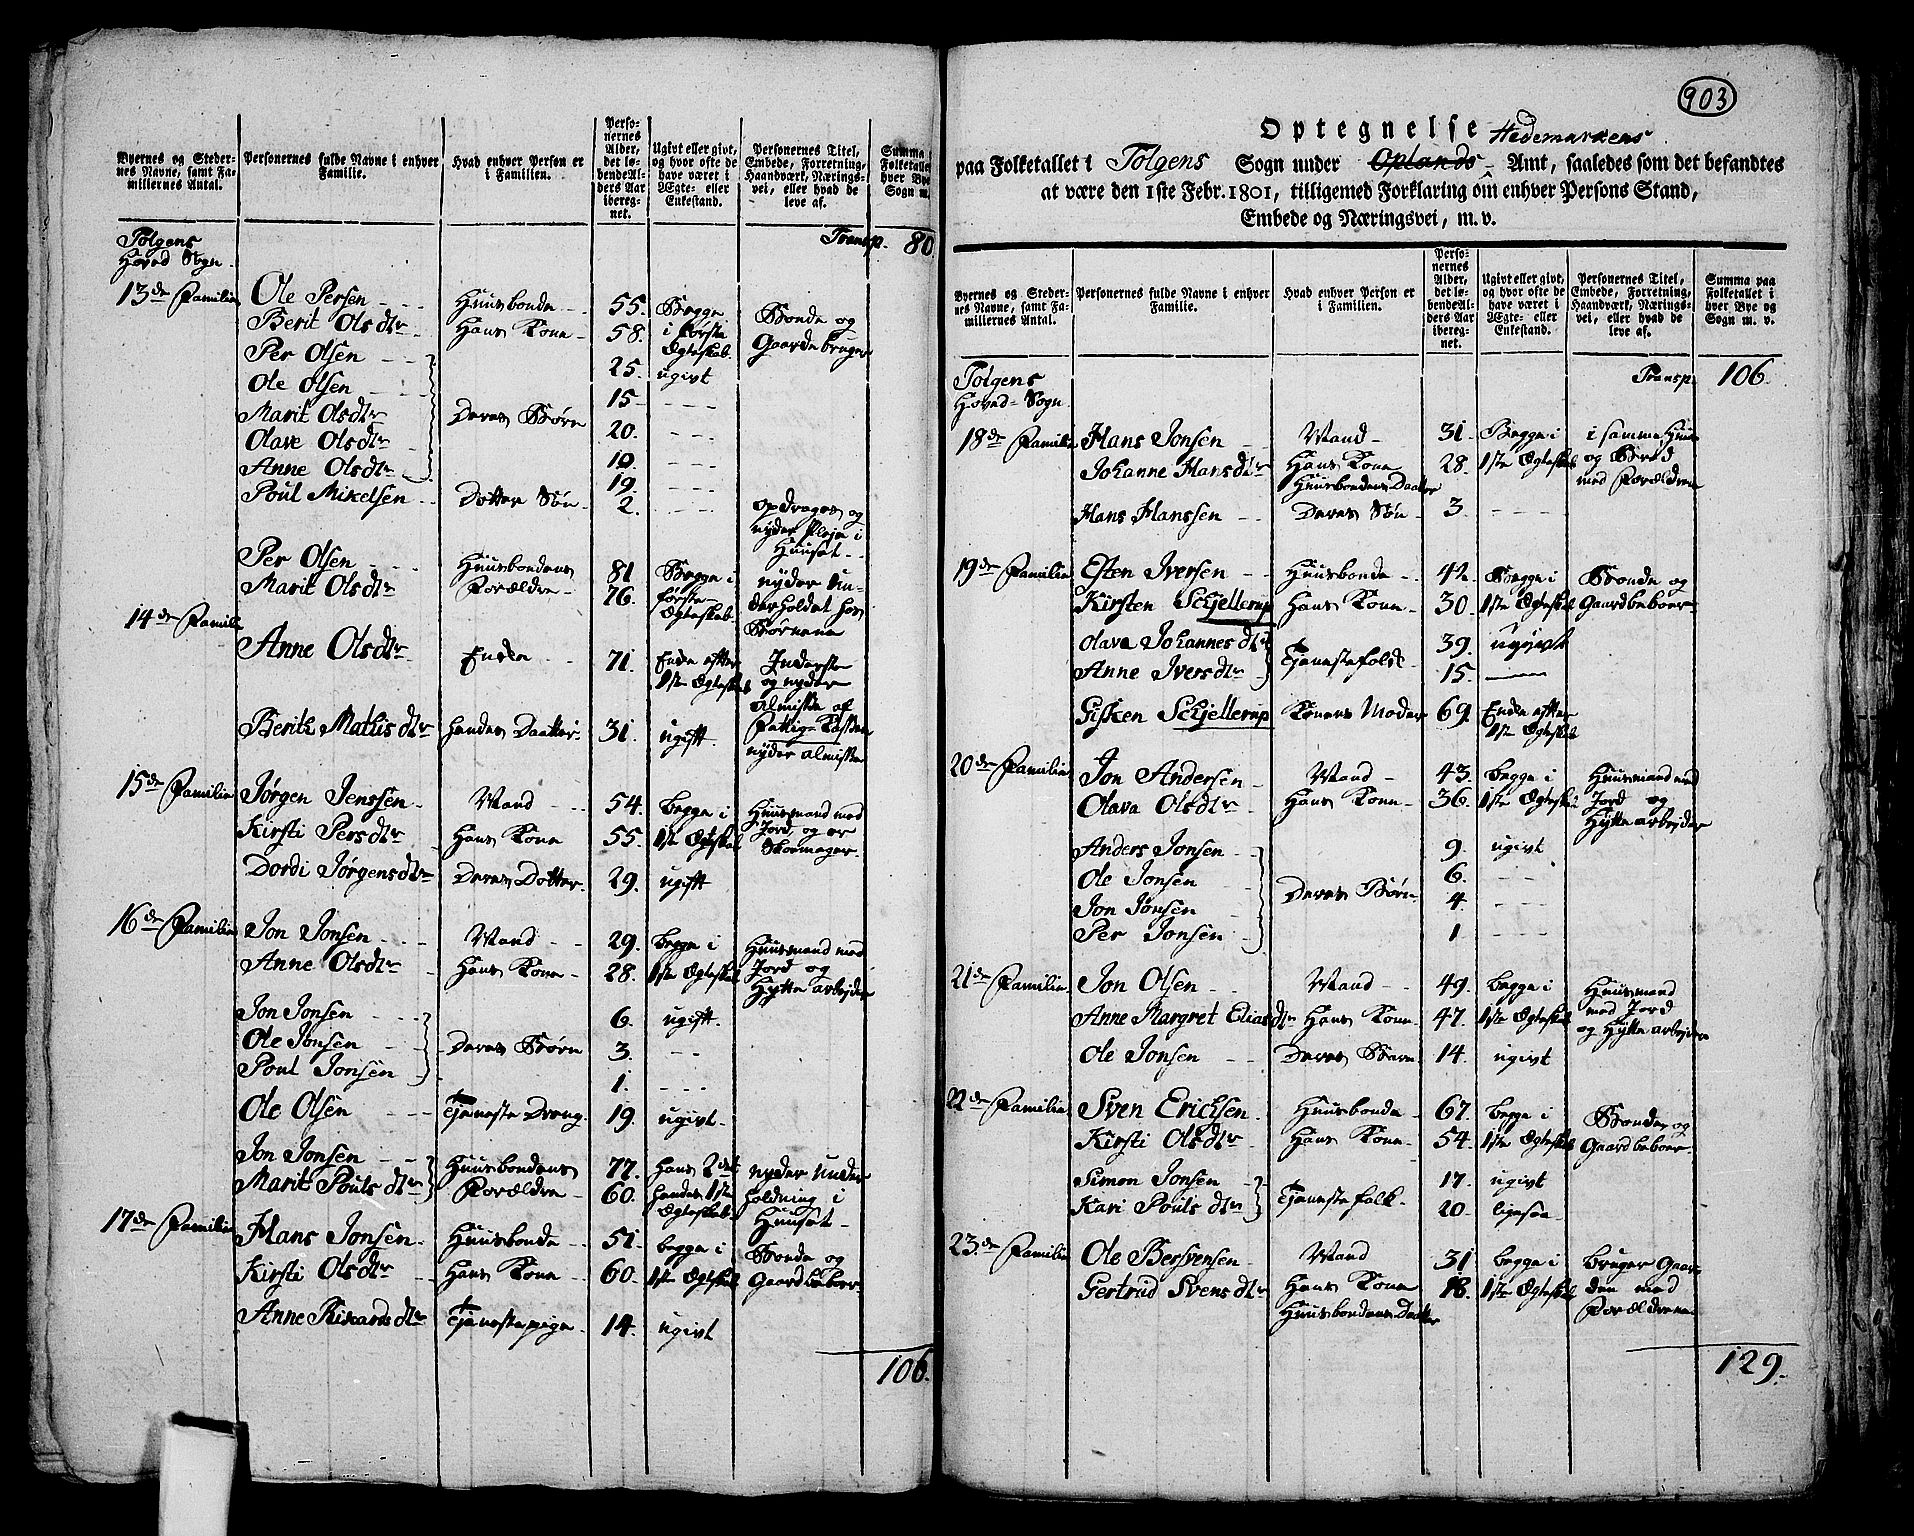 Byernes og Stedernes Navne, samt Familiernes Antal. | Personernes fulde Navne i enhver Familie. | Hvad enhver Person er i Familien. | Personernes Alder, det løbende Alders Aar iberegnet. | Ugivt eller givt, og hvor ofte de have været i Ægte- eller Enkestand. | Personernes Titel, Embede, Forretning, Haandværk, Næringsvei, eller hvad de leve af. | Summa Folketallet hver Bye Sogn m.
Tolgens Hoved Sogn | Transp. 80
13de Familie | Ole Persen | Huusbonde | 55. | Begge i første Ægteskab. | Bonde og Gaardebruger
Berit Olsdtr | Hans Kone | 58.
Per Olsen | Deres Børn | 25. | ugivt
Ole Olsen | 15
Marit Olsdtr | 20.
Olave Olsdtr | 10.
Anne Olsdtr | 19.
Poul Mikelsen | Dotter Søn | 2. | opdrages og nyder Pleje i Huuset
Per Olsen | Huusbondens Forældre | 81 | Begge i første Ægteskab. | nyder Underholdet hos Børnene
Marit Olsdtr | 76.
14de Famili | Anne Olsdtr | Enke | 71. | Enke efter 1ste Ægteskab | Inderste og nyder Almisse af Fattig-Kassen
Berith Mathis dtr | hendes Daatter | 31. | ugift. | nyder almisse
15de Familie | Jørgen Jenssen | Mand | 54. | begge i 1ste Ægteskab | Huusmand med Jord, og er Skoemager
Kirsti Persdtr | Hans Kone | 55.
Dordi Jørgensdtr | Deres Dotter | 29. | ugift
16de Familie | Jon Jonsen | Mand | 29. | begge i 1ste Ægteskab | Huusmand med Jord og Hytte arbejder
Anne Olsdtr | Hans Kone | 28.
Jon Jonsen | Deres Børn | 6. | ugift.
Ole Jonsen | 3.
Poul Jonsen | 1.
Ole Olsen | Tjeneste Dreng | 19. | ugivt.
Jon Jonsen | Huusbondens Forældre | 77. | hans 2det hendes 1ste Ægteskab. | nyder Underholdning i Huuset
Marit Pouls dtr | 60.
17de Familie | Hans Jonsen | Huusbonde | 51. | begge i 1ste Ægteskab | Bonde og Gaardbeboer
Kirsti Olsdtr | Hans Kone | 60.
Anne Rikards dtr | Tjenestepige | 14. | ugivt
106.
903
Optegnelse
paa Folketallet i Tolgens Sogn under Oplands Hedemarkens Amt, saaledes som det befandtes
at være den 1ste Febr. 1801, tilligemed Forklaring om enhver Persons Stand,
Embede og Næringsvei, m. v.
Byernes og Stedernes Navne, samt Familiernes Antal. | Personernes fulde Navne i enhver Familie. | Hvad enhver Person er i Familien. | Personernes Alder, det løbende Alders Aar iberegnet. | Ugivt eller givt, og hvor ofte de have været i Ægte- eller Enkestand. | Personernes Titel, Embede, Forretning, Haandværk, Næringsvei, eller hvad de leve af. | Summa paa Folketallet i hver Bye og Sogn m. v.
Tolgens Hoved-Sogn | Transp. 106.
18de Familie | Hans Jonsen | Mand | 31. | Begge i 1ste Ægteskab | i samme Huus og Brød med Forældrene
Johanne Hansdtr | Hans Kone Huusbondens Daatter | 28.
Hans Hanssen | Deres Søn | 3.
19de Familie | Esten Iversen | Huusbonde | 42. | Begge i 1ste Ægteskab | Bonde og Gaardbeboer
Kirsten Schjellerup | Hans Kone | 30.
Olava Johannes dtr | Tjenestefolk | 39. | ugivt
Anne Iversdtr | 15.
Gisken Schjellerup | Konens Moder | 69. | Enke efter 1ste Ægteskab
20de Familie | Jon Andersen | Mand | 43. | begge i 1ste Ægteskab | Huusmand med Jord og Hytte arbejder
Olava Olsdtr | Hans Kone | 36.
Anders Jonsen | Deres Børn | 9. | ugivt
Ole Jonsen | 6.
Jon Jonsen | 4.
Per Jonsen | 1
21de Familie | Jon Olsen | Mand | 49. | begge i 1ste Ægteskab | Huusmand med Jord og Hytte arbejder
Anne Margret Elias dtr | Hans Kone | 47.
Ole Jonsen | Deres Barn | 14. | ugivt
22de Familie | Sven Erichsen | Huusbonde | 67. | begge i 1ste Ægteskab | Bonde og Gaardbeboer
Kirsti Olsdtr | Hans Kone | 54.
Simon Jonsen | Tjenestefolk | 17. | ugivt
Kari Pouls dtr | 20. | ligesaa
23de Familie | Ole Bersvensen | Mand | 31 | begge i 1ste Ægteskab | bruger Gaarden med Forældrene
Gertrud Svens dtr | Hans Kone Huusbondens Datter | 18.
129.